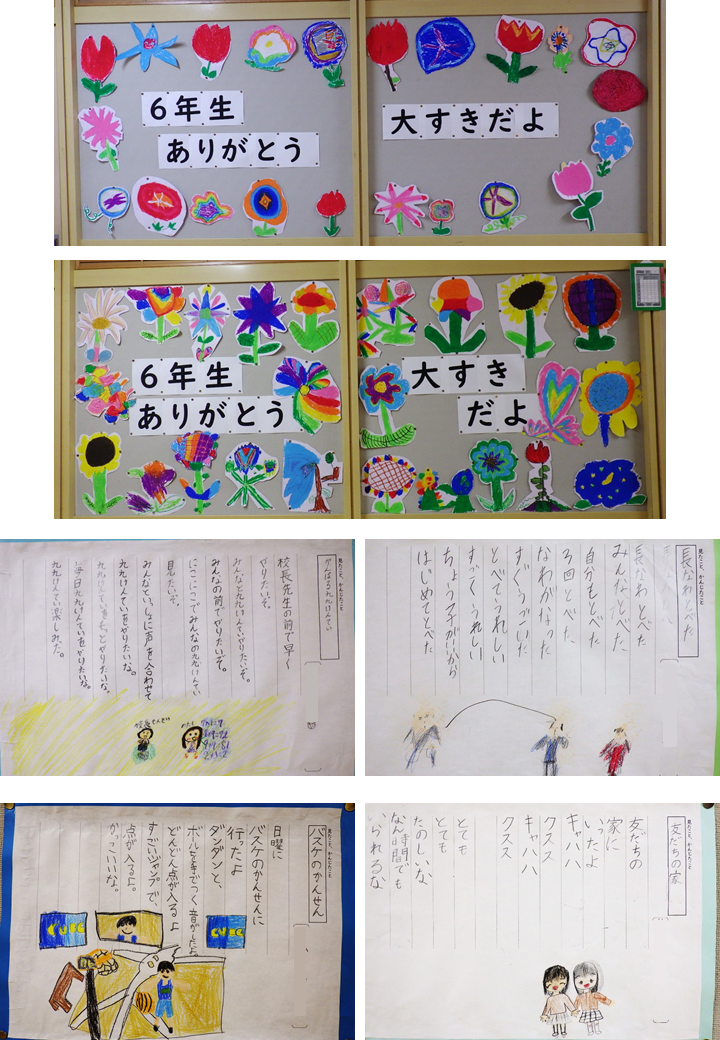 6年生
ありがとう
大すきだよ
6年生
ありがとう
大すき
だよ
見たこと、かんじたこと
がんばる九九けんてい
校長先生の前で早く
やりたいぞ。
みんなと九九けんていやりたいぞ。
みんなの前でやりたいぞ。
にこにこでみんなの九九けんてい
見たいぞ。
みんなといっしょに声を合わせて
九九けんていをやりたいな。
九九けんていをもっとやりたいな。
毎日九九けんていをやりたいな。
九九けんてい楽しみだ。
校長せんせい
わたし
見たこと、かんじたこと
長なわとべた
長なわとべた
みんなとべた
自分もとべた
3回とべた
なわがなった
すごいうごいた
とべてうれしい
すごくうれしい
はじめてとべた
見たこと、かんじたこと
バスケのかんせん
日曜に
バスケのかんせんに
行ったよ
ダンダンと、
ボールを手でつく音がしたよ
どんどん点が入るよ
すごいジャンプで、
点が入るよ。
かっこいいな。
見たこと、かんじたこと
友だちの家
友だちの
家に
いったよ
キャハハ
クスス
キャハハ
クスス
とても
とても
たのしいな
なん時間でも
いられるな